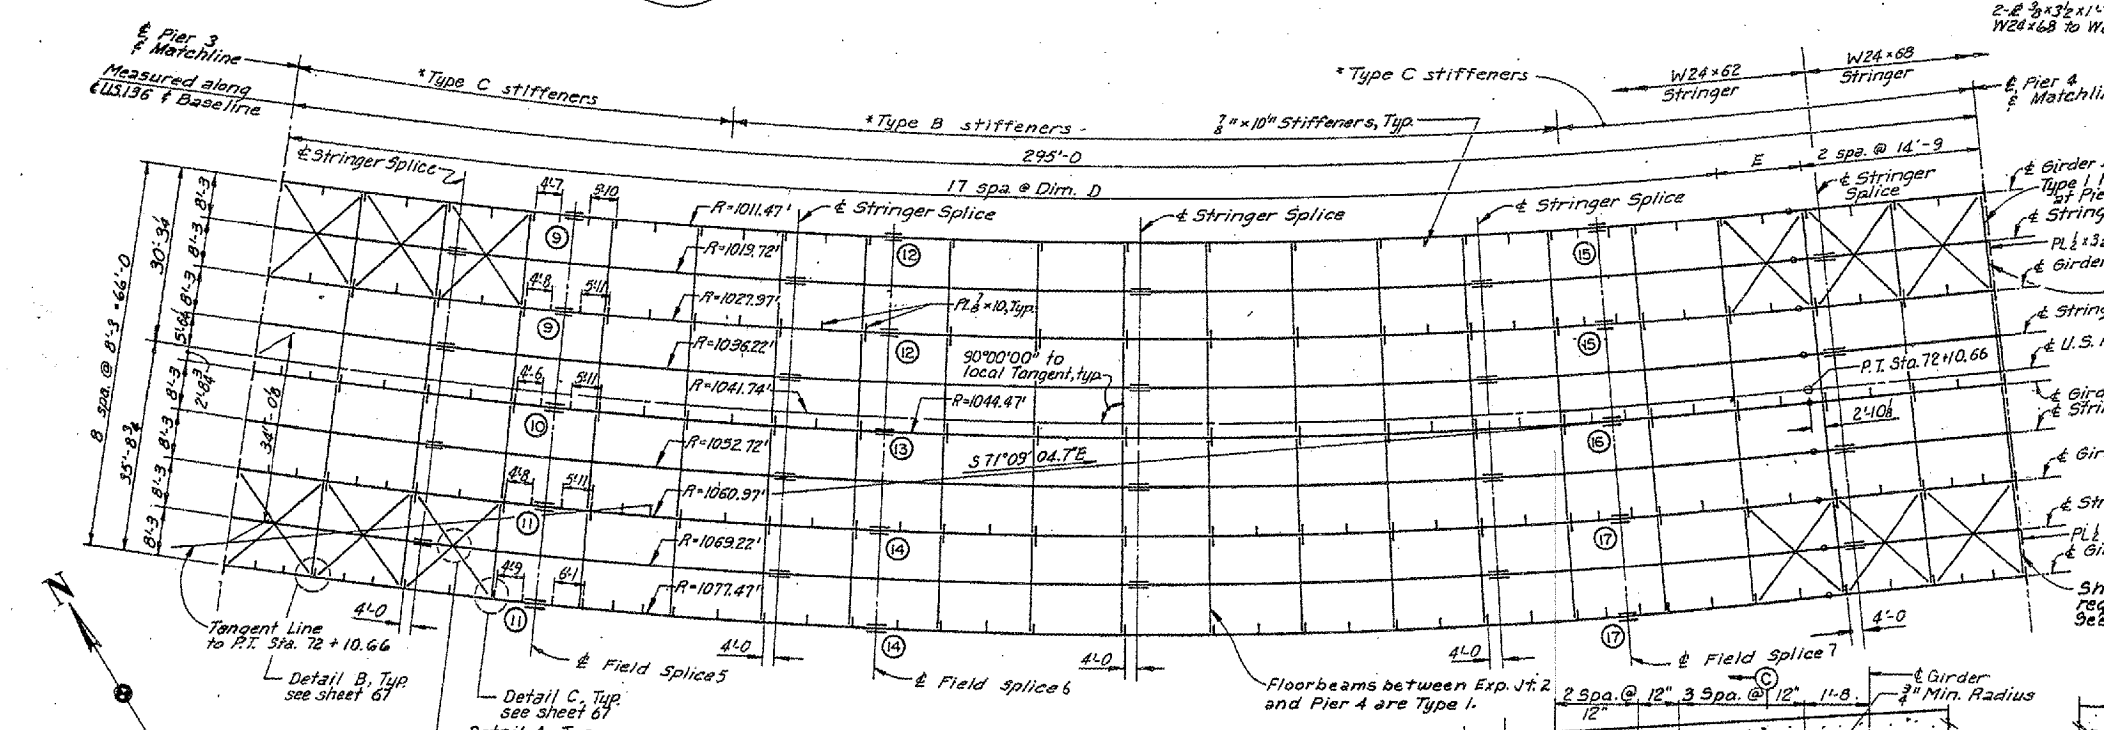 2-℄ 3/8×3½×1'-
W24×68 to W2
℄ Pier 3
℄ Matchline
Measured along
℄ U.S.136 ℄ Baseline
*Type C stiffeners
*Type B stiffeners
7/8"×10" Stiffeners, Typ.
*Type C stiffeners
W24×62
Stringer
W24×68
Stringer
℄ Pier 4
℄ Matchli
295'-0
17 spa @ Dim. D
E
2 spa. @ 14'-9
℄ Stringer Splice
℄ Stringer Splice
℄ Stringer Splice
℄ Stringer Splice
℄ Stringer
Splice
℄ Girder
Type 1
at Pie
℄ String
PL ½×3
℄ Girder
℄ String
℄ U.S.
℄ Gird
℄ Stri
℄ Gir
℄ Str
PL ½
℄ Gi
Sh
req
See
8 spa. @ 8'-3 = 66'-0
30'-3¼
35'-8¾
8'-3
8'-3
8'-3
8'-3
8'-3
8'-3
8'-3
2'-8¾
34'-0⅛
4'-7
5'-10
9
4'-8
5'-11
9
4'-6
5'-11
10
4'-8
5'-11
11
4'-9
6'-1
11
R=1011.47'
R=1019.72'
R=1027.97'
R=1036.22'
R=1041.74'
R=1044.47'
R=1052.72'
R=1060.97'
R=1069.22'
R=1077.47'
PL 7/8×10, Typ.
90°00'00" to
local Tangent, typ.
S 71°09' 04.7"E
12
12
13
14
14
15
15
16
17
17
P.T. Sta. 72+10.66
2'-10⅛
N
Tangent Line
to P.T. Sta. 72+10.66
Detail B, Typ.
see sheet 67
Detail C, Typ.
see sheet 67
4'-0
4'-0
4'-0
4'-0
4'-0
℄ Field Splice 5
℄ Field Splice 6
℄ Field Splice 7
Floorbeams between Exp. Jt. 2
and Pier 4 are Type 1.
C
2 Spa. @ 12"
12"
3 Spa. @ 12"
1'-8
℄ Girder
¾" Min. Radius